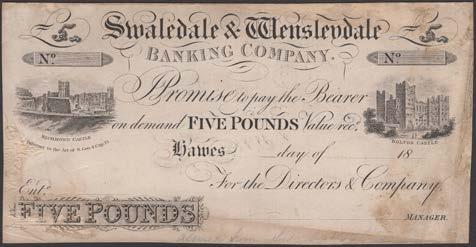 £5
Swaledale & Wensleydale
£5
BANKING COMPANY.
No
No
Promise to pay the Bearer
on demand FIVE POUNDS Value recd.
RICHMOND CASTLE
BOLTON CASTLE
Pursuant to the Act of
Hawes day of 18
For the Directors & Company.
Entd.
FIVE POUNDS
MANAGER.